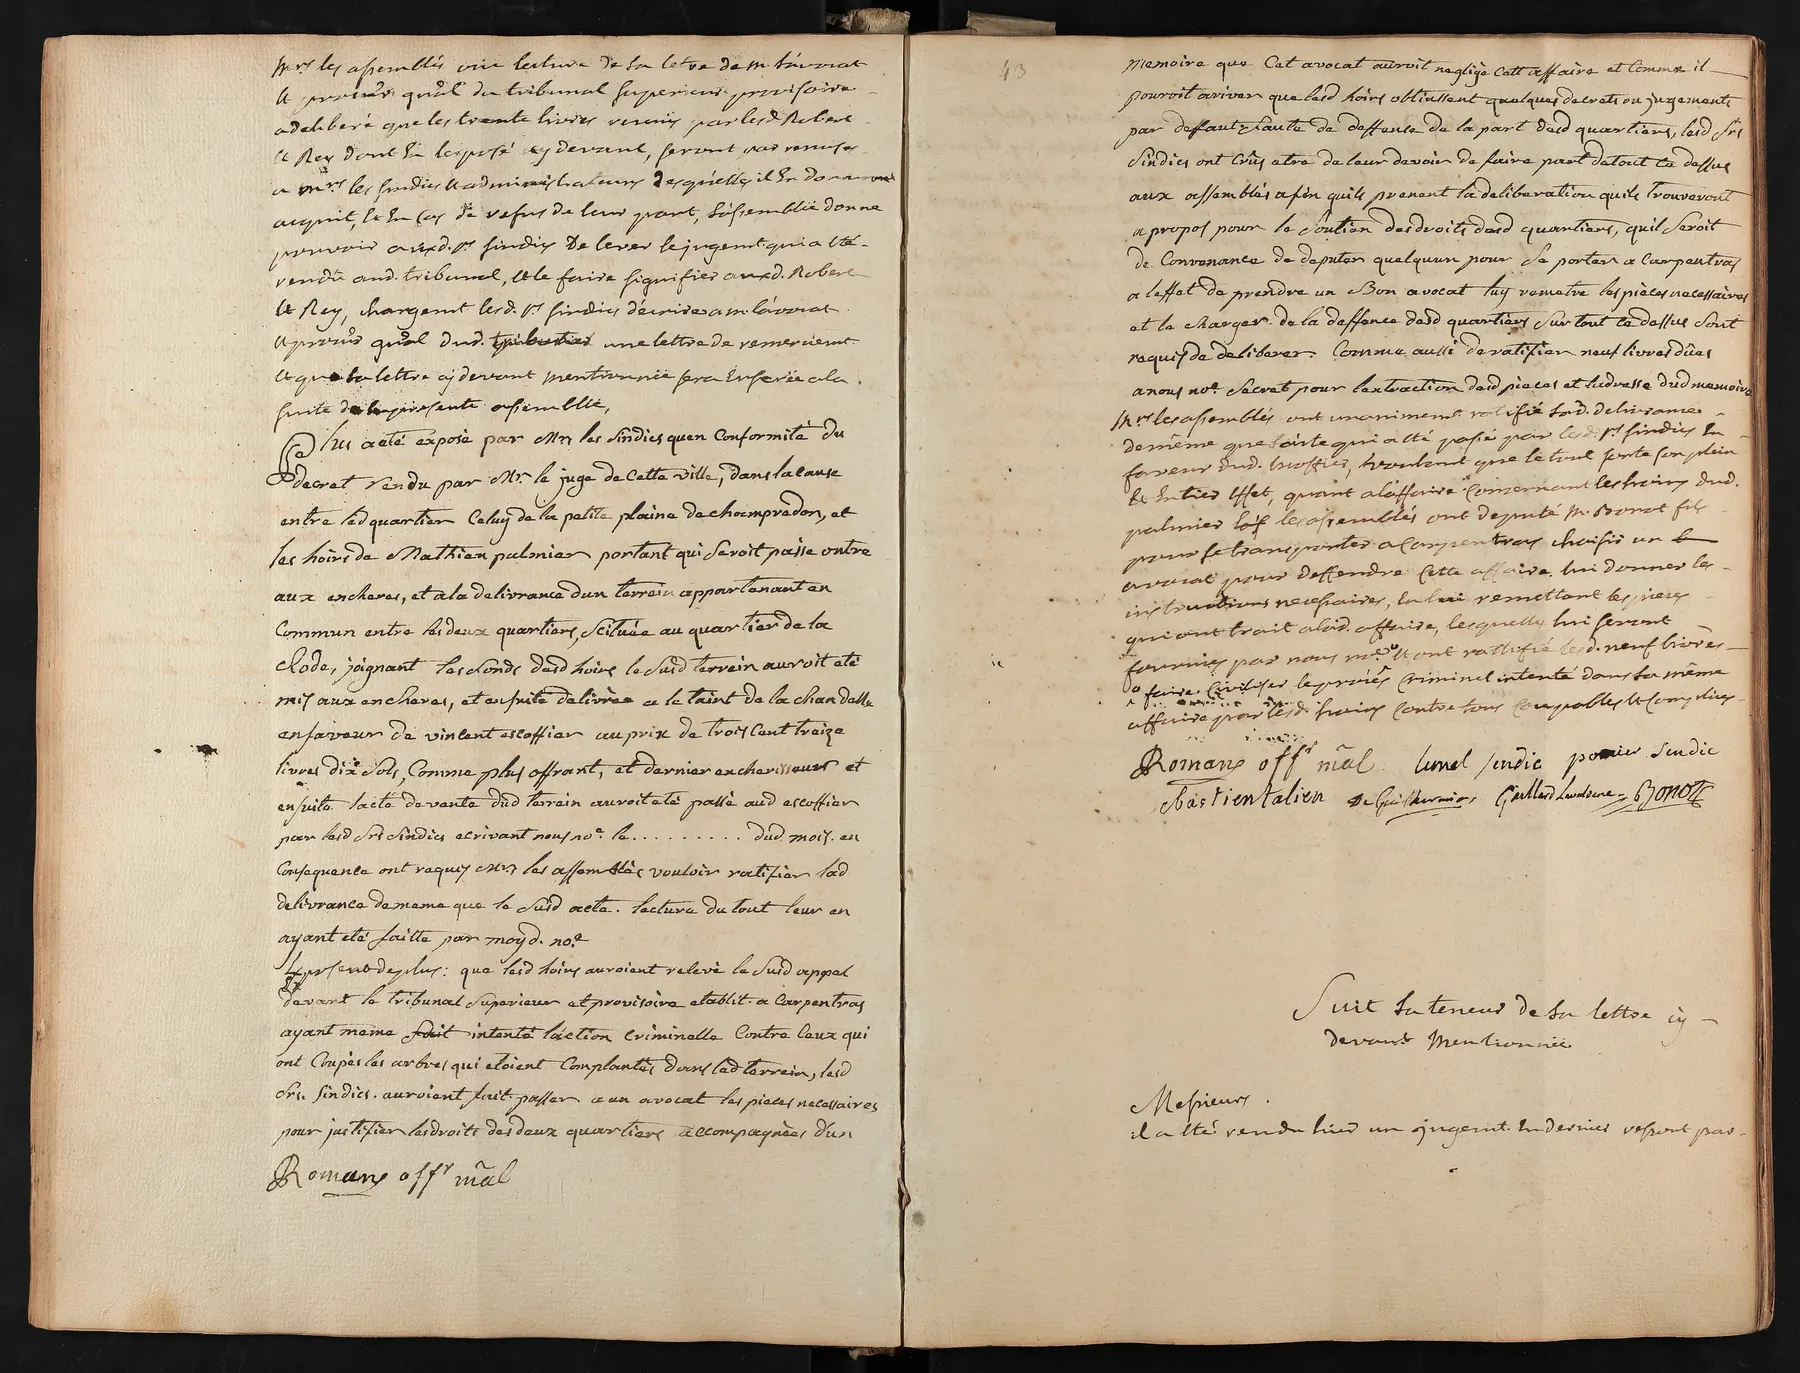 Mrs les assemblés ouie lecture de la letre de m l'avocat
et procur. gnãl du tribunal superieur provisoire
a deliberé que les trente livres remis par lesd. Robert
et Rey dont En lexposé cy devant, seront par remises
a mrs les sindics et administrateurs desquelles il En donneront
acquit, Et En Cas de refus de leur part, l'assemblée donne
pouvoir auxd. srs sindics De lever le jugemt. qui a été
rendû aud. tribunal, et le faire signifier auxd. Robert
et Rey, chargent lesd. srs sindics d'écrire a m l'avocat
et procur. gnãl dud. tribunal une lettre de remerciemt.
et que la lettre cy devant mentionnée sera Enserée a la
suite de la presente assemblée,
Plus a eté exposé par Mrs les Sindics quen Conformité du
decret rendu par Mr. le juge de Cette ville, dans la cause
entre led quartier Celuy de la petite plaine de champredon, et
les hoirs de Mathieu palmier portant qui seroit passé outre
aux encheres, et a la delivrance dun terrein appartenant en
Commun entre les deux quartiers, scituée au quartier de la
Clode, joignant les fonds desd hoirs le susd terrein auroit eté
mis aux encheres, et ensuite delivrée a le taint de la chandelle
enfaveur de vincent escoffier au prix de trois Cent treize
livres dix sols, Comme plus offrant, et dernier encherisseur et
ensuite lacte de vente dud terrein auroit eté passé aud escoffier
par lesd Srs Sindics ecrivant nous noe. le . . . . . . . . . dud. mois. en
Consequence ont requis Mrs les assemblés vouloir ratifier lad
delivrance de meme que le susd acte. lecture du tout leur en
ayant eté faitte par moyd. noe.
Exposent de plus: que lesd hoirs auroient relevé le susd appel
devant le tribunal superieur et provisoire etablit a Carpentras
ayant meme fait intenté l'action Criminelle Contre Ceux qui
ont Coupés les arbres qui etoient Complantés dans led terrein, lesd
Srs. Sindics. auroient fait passer a un avocat les pieces necessaires
pour justifier les droits des deux quartiers accompagnées d'un
Romans offr mãl
43
memoire que Cet avocat auroit negligé Cett affaire et Comme il
pouroit ariver que lesd hoirs obtinssent quelques decrets ou jugements
par deffaut, faute de deffense de la part desd quartiers, lesd Srs
Sindics ont Crûs etre de leur devoir de faire part detout Ce dessus
aux assemblés afin quils prenent la deliberation quils trouveront
a propos pour le soutien des droits desd quartiers, quil seroit
de Convenance de deputer quelquun pour se porter a Carpentras
a leffet de prendre un Bon avocat luy remetre les pièces necessaires
et le charger de la deffence desd quartiers sur tout Ce dessus sont
requis de deliberer. Comme aussi de ratifier neuf livres dûes
a nous noe. Secret pour l'extraction desd pieces et ladresse dud memoire
Mrs les assemblés ont unanimemt. ratifié lad. delivrance
de même que l'acte qui a été passé par lesd. srs sindics En
faveur dud. Escoffier, voulant que le tout sorte son plein
Et Entier Effet, quant a l'affaire Concernant les hoirs dud.
palmier les assemblés ont deputé M. Bonot fils
pour se transporter a Carpentras choisir un
avocat pour deffendre Cette affaire, lui donner les
instructions necessaires, En lui remettant les pieces
qui ont trait a lad. affaire, lesquelles lui seront
fournies par nous noe. Et ont rattifié lesd. neuf livres
faire Civiliser le procès Criminel intenté dans la même
affaire par lesd. hoirs Contre tous Coupables et Complices
Romans offr mãl lunel sindic ponier Sindic
Sbastientalien De Guilhermier Gaillard Lavaldene BONOT
Suit la teneur de la lettre cy
devant Mentionnée
Messieurs.
il a été rendu hier un jugemt. En dernier ressort par